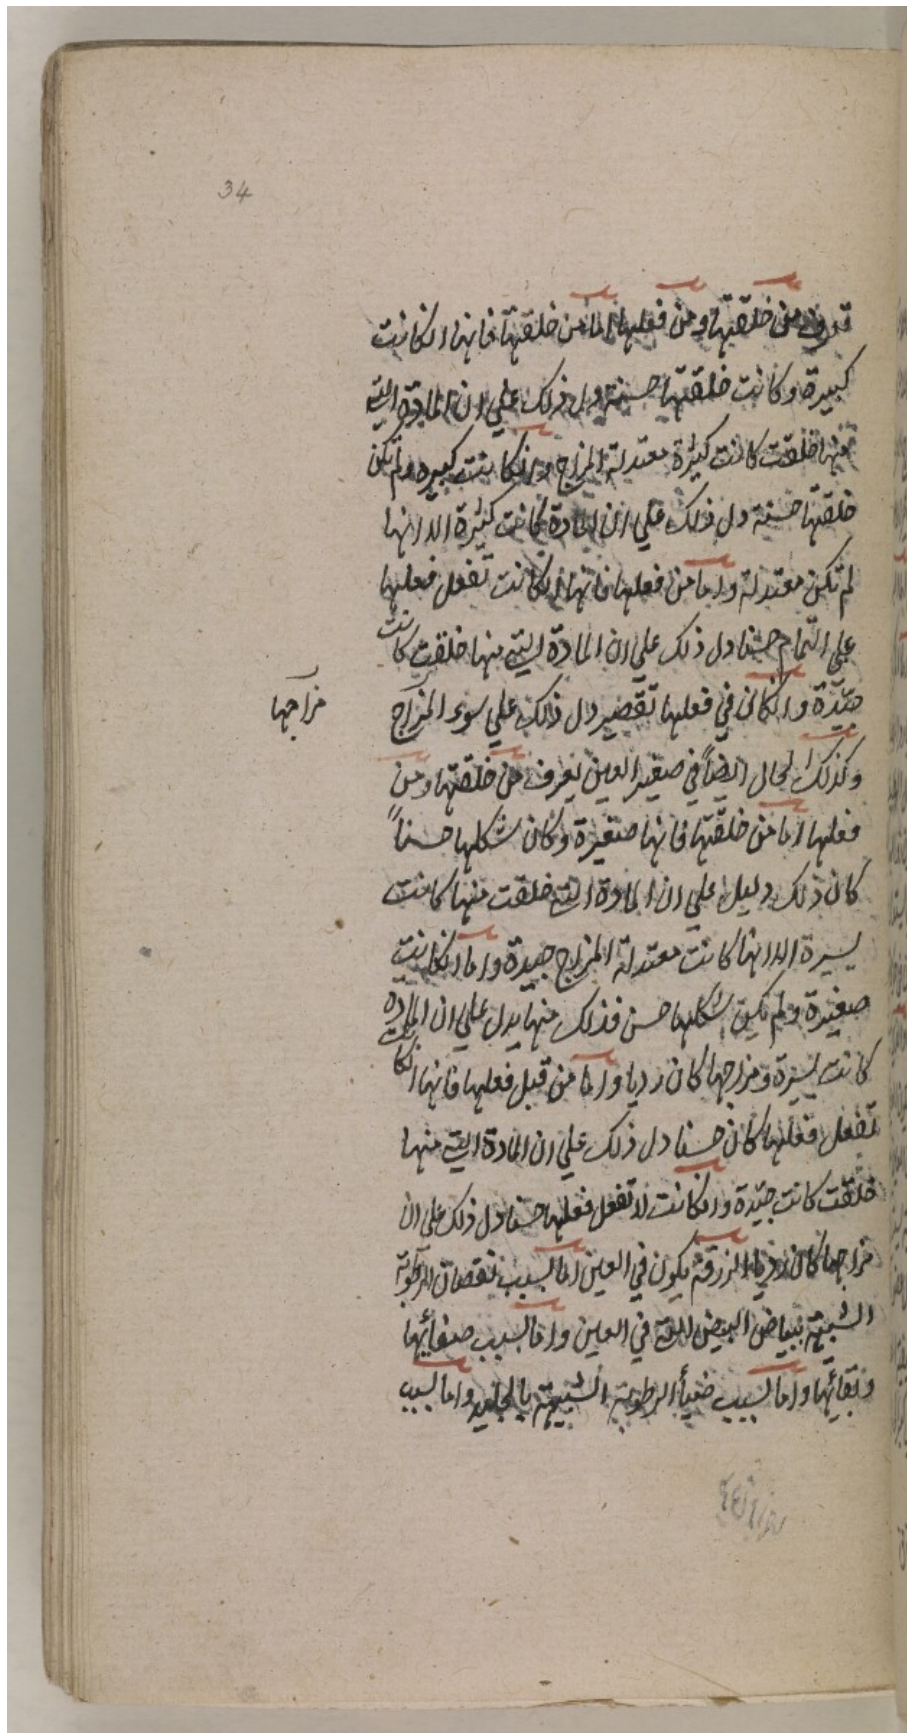 34
تعرف من خلقتها ومن فعلها اما من خلقتها فانها انكانت
كبيرة وكانت خلقتها حسنة دل ذلك علي ان المادة التي
منها خلقت كانت كثيرة معتدلة المزاج وانكانت كبيره ولم تكن
خلقتها حسنة دل ذلك علي ان المادة كانت كثيرة الا انها
لم تكن معتدلة واما من فعلها فانها انكانت تفعل فعلها
علي التمام حسنا دل ذلك علي ان المادة التي منها خلقت كانت
جيّدة وانكان في فعلها تقصير دل ذالك علي سوء المزاج
مزاجها
وكذلك الحال ايضاً في صغير العين يعرف من خلقتها ومن
فعلها اما من خلقتها فانها صغيرة وكان شكلها حسناً
كان ذلك دليل علي ان المادة التي خلقت منها كانت
يسيرة الا انها كانت معتدلة المزاج جيدة واما انكانت
صغيرة ولم يكن شكلها حسن فذلك منها يدل علي ان الماده
كانت يسيرة ومزاجها كان رديا واما من قبل فعلها فانها انكانت
تفعل فعلها كان حسنا دل ذلك علي ان المادة التي منها
خلقت كانت جيّدة وانكانت لا تفعل فعلها حسنا دل ذلك علي ان
مزاجها كان رديا الزرقة يكون في العين اما لسبب نقصان الرطوبة
الشبيهة ببياض البيض اللتي في العين واما لسبب صفائها
ونقائها واما لسبب ضيأ الرطوبة الشبيهة بالجليد واما لسبب